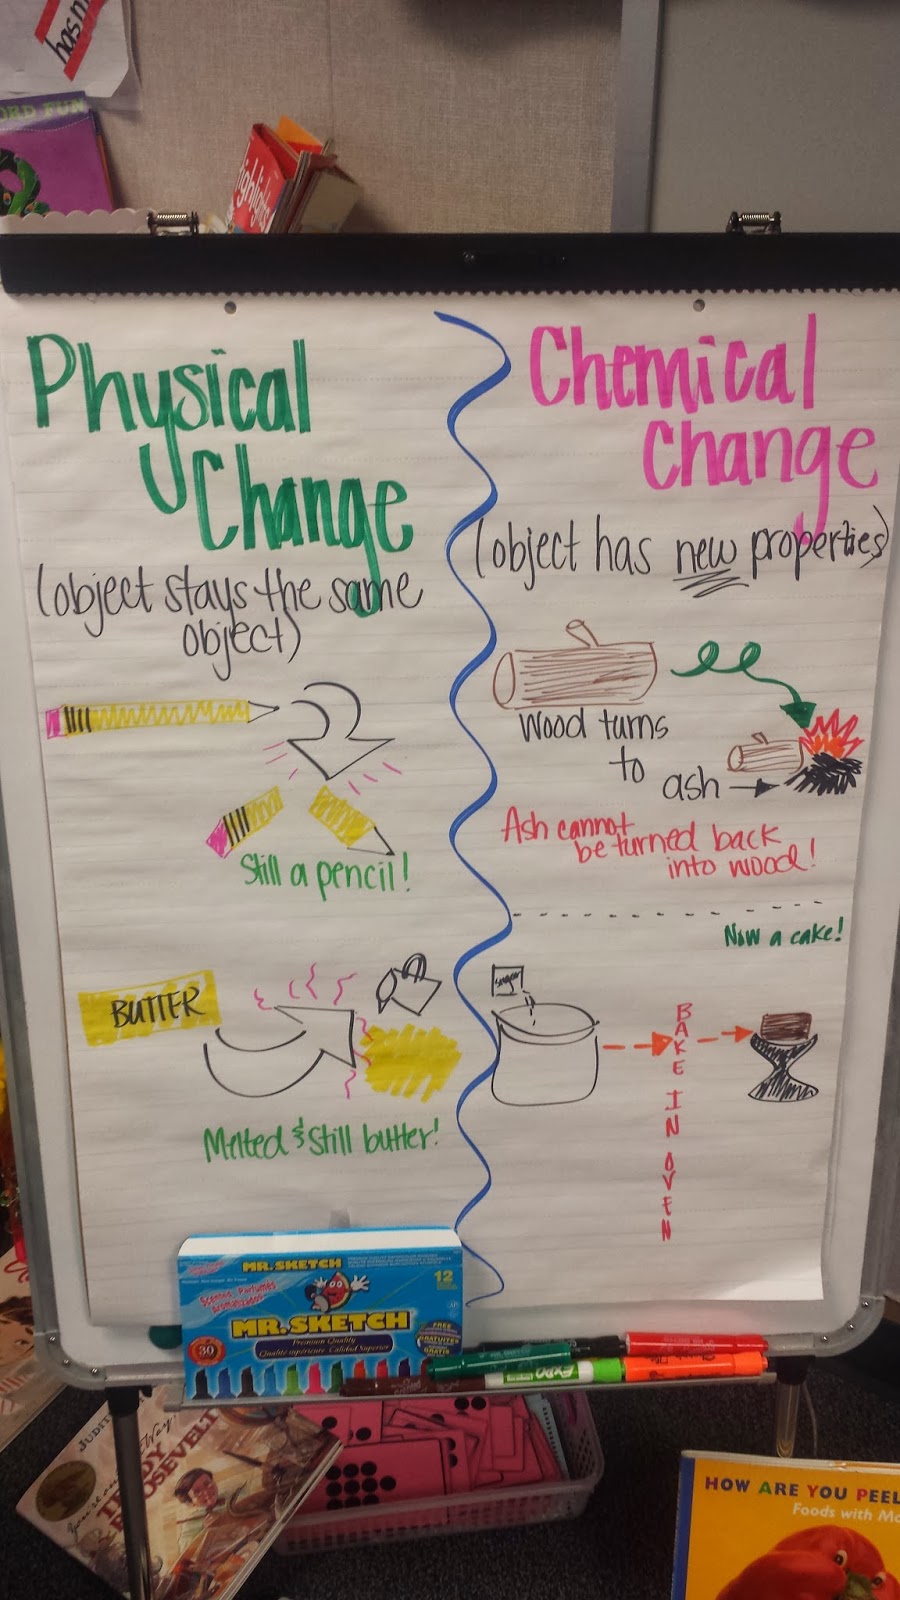 ORD FUN
highlights
Physical
Change
(object stays the same
object)
Still a pencil!
BUTTER
Melted & still butter!
Chemical
Change
(object has new properties)
Wood turns
to
ash
Ash cannot
be turned back
into wood!
Now a cake!
sugar
BAKE IN OVEN
MR. SKETCH
12
MR. SKETCH
Premium Quality
Qualité supérieure. Calidad Superior
30
EXPO
TEDDY
ROOSEVELT
HOW ARE YOU PEEL
Foods with Mo